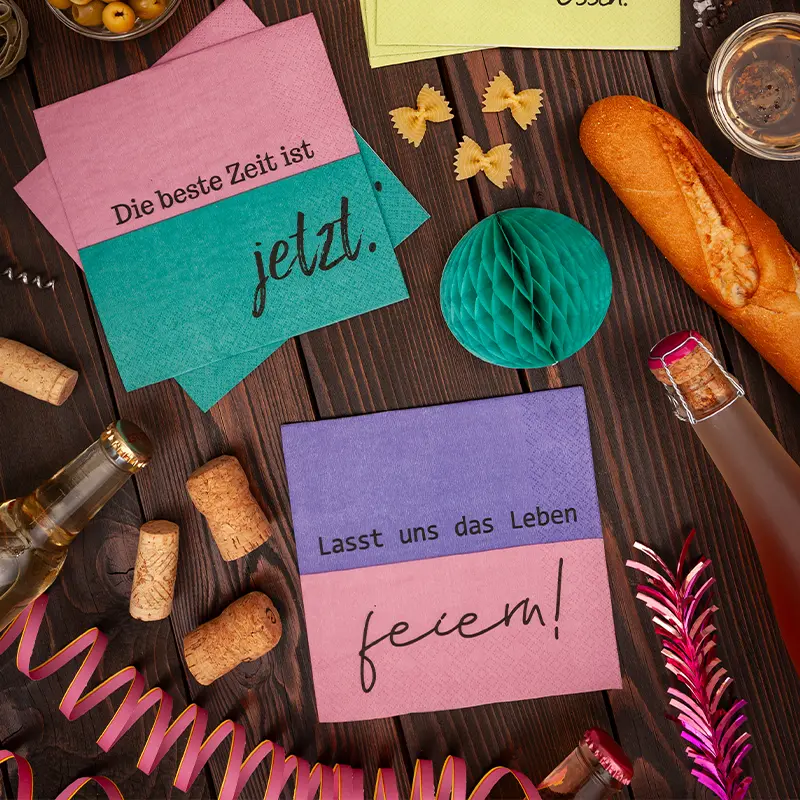 essen.
Die beste Zeit ist
jetzt.
Lasst uns das Leben
feiern!